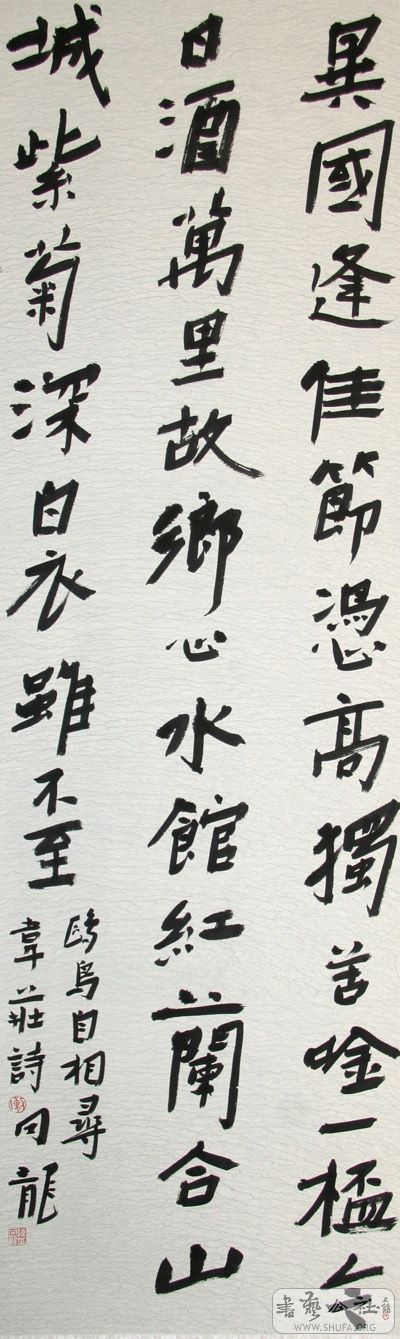 異國逢佳節慿高獨苦唫一桮今
日酒萬里故鄉心水館紅蘭合山
城紫菊深白衣雖不至
鷗鳥自相尋
韋莊詩 龍
書藝公社
WWW.SHUFA.ORG